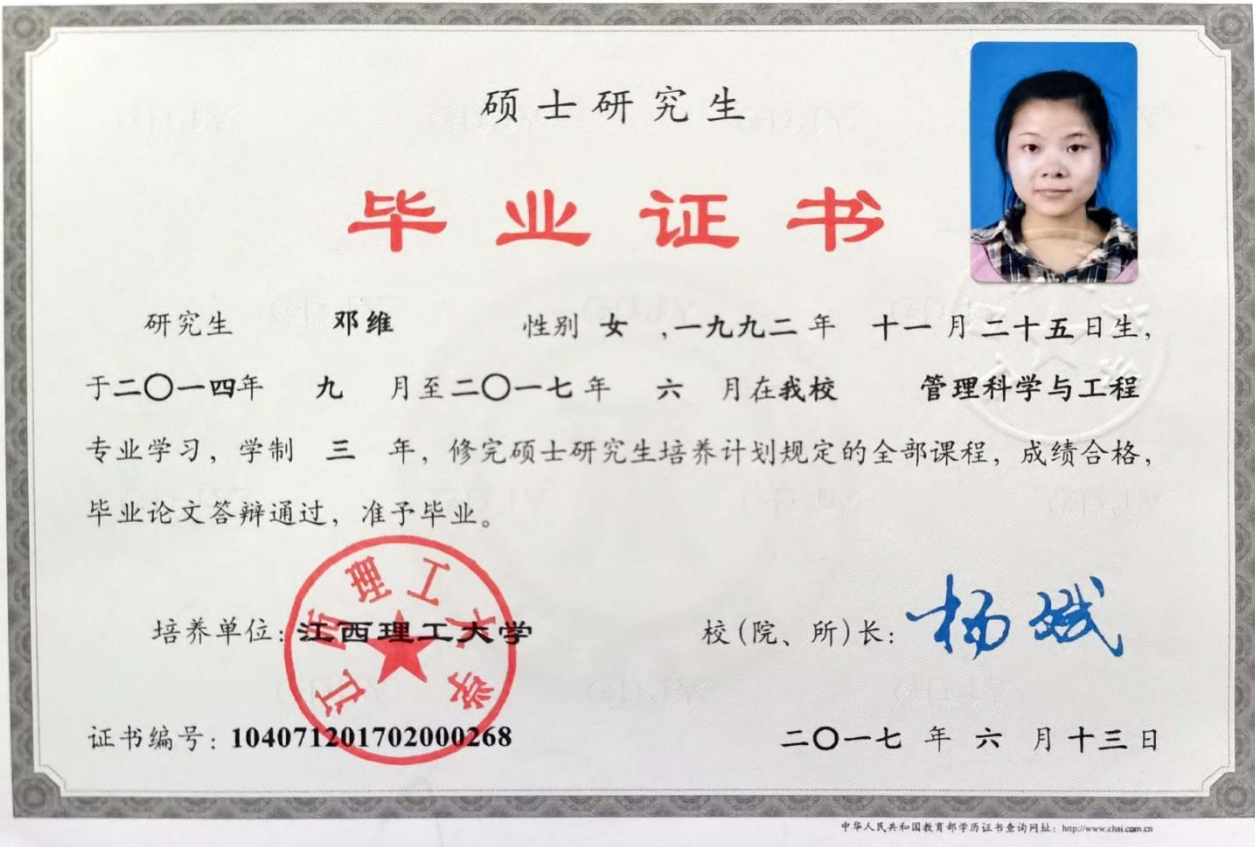 硕士研究生
毕业证书
研究生 邓维 性别 女 ,一九九二年 十一月二十五日生,
于二〇一四年 九 月至二〇一七年 六 月在我校 管理科学与工程
专业学习, 学制 三 年, 修完硕士研究生培养计划规定的全部课程, 成绩合格,
毕业论文答辩通过, 准予毕业。
江西理工大学
培养单位: 江西理工大学 校(院、所)长: 杨斌
证书编号: 104071201702000268 二〇一七 年 六 月 十三 日
中华人民共和国教育部学历证书查询网址: http://www.chsi.com.cn